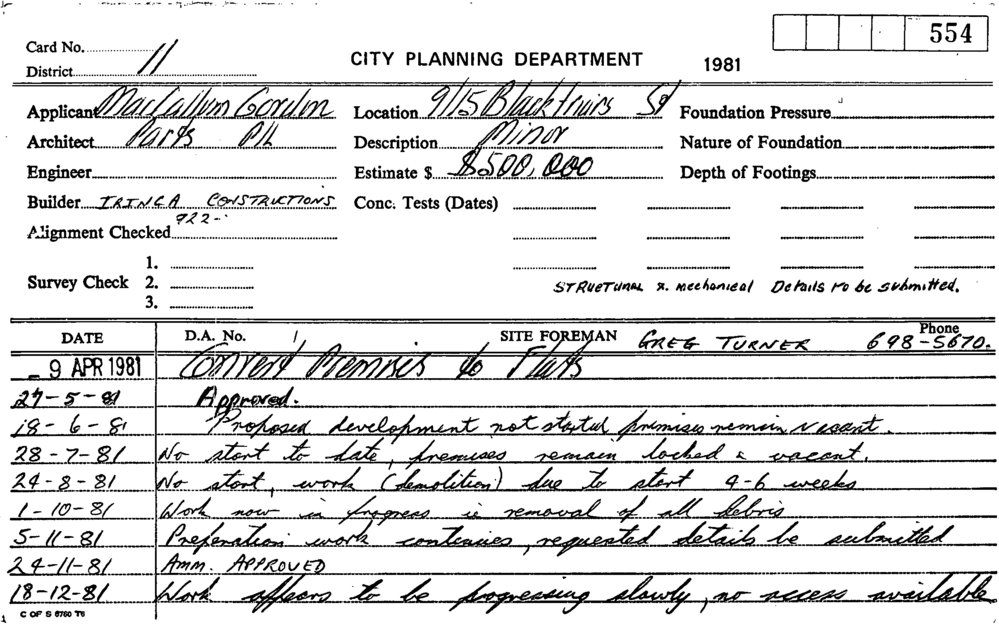 554
Card No.
District 11
CITY PLANNING DEPARTMENT 1981
Applicant MacCallum Gordon Location 9/15 Blackfriars St Foundation Pressure
Architect Parts P/L Description Minor Nature of Foundation
Engineer Estimate $ $500,000 Depth of Footings
Builder IRINCA CONSTRUCTIONS Conc. Tests (Dates)
922-
Alignment Checked
1.
Survey Check 2.
3.
STRUCTURAL & mechanical Details to be submitted.
DATE D.A. No. SITE FOREMAN GREG TURNER Phone 698-5670.
- 9 APR 1981 Convert Premises to Flats
27-5-81 Approved.
18-6-81 Proposed development not started premises remain vacant.
28-7-81 No start to date, premises remain locked & vacant.
24-8-81 No start, work (demolition) due to start 4-6 weeks
1-10-81 Work now in progress ie removal of all debris
5-11-81 Preperation work contenues, requested details be submitted
24-11-81 Amm. APPROVED
18-12-81 Work appears to be progressing slowly, no access available.
C OF S 6760 T6